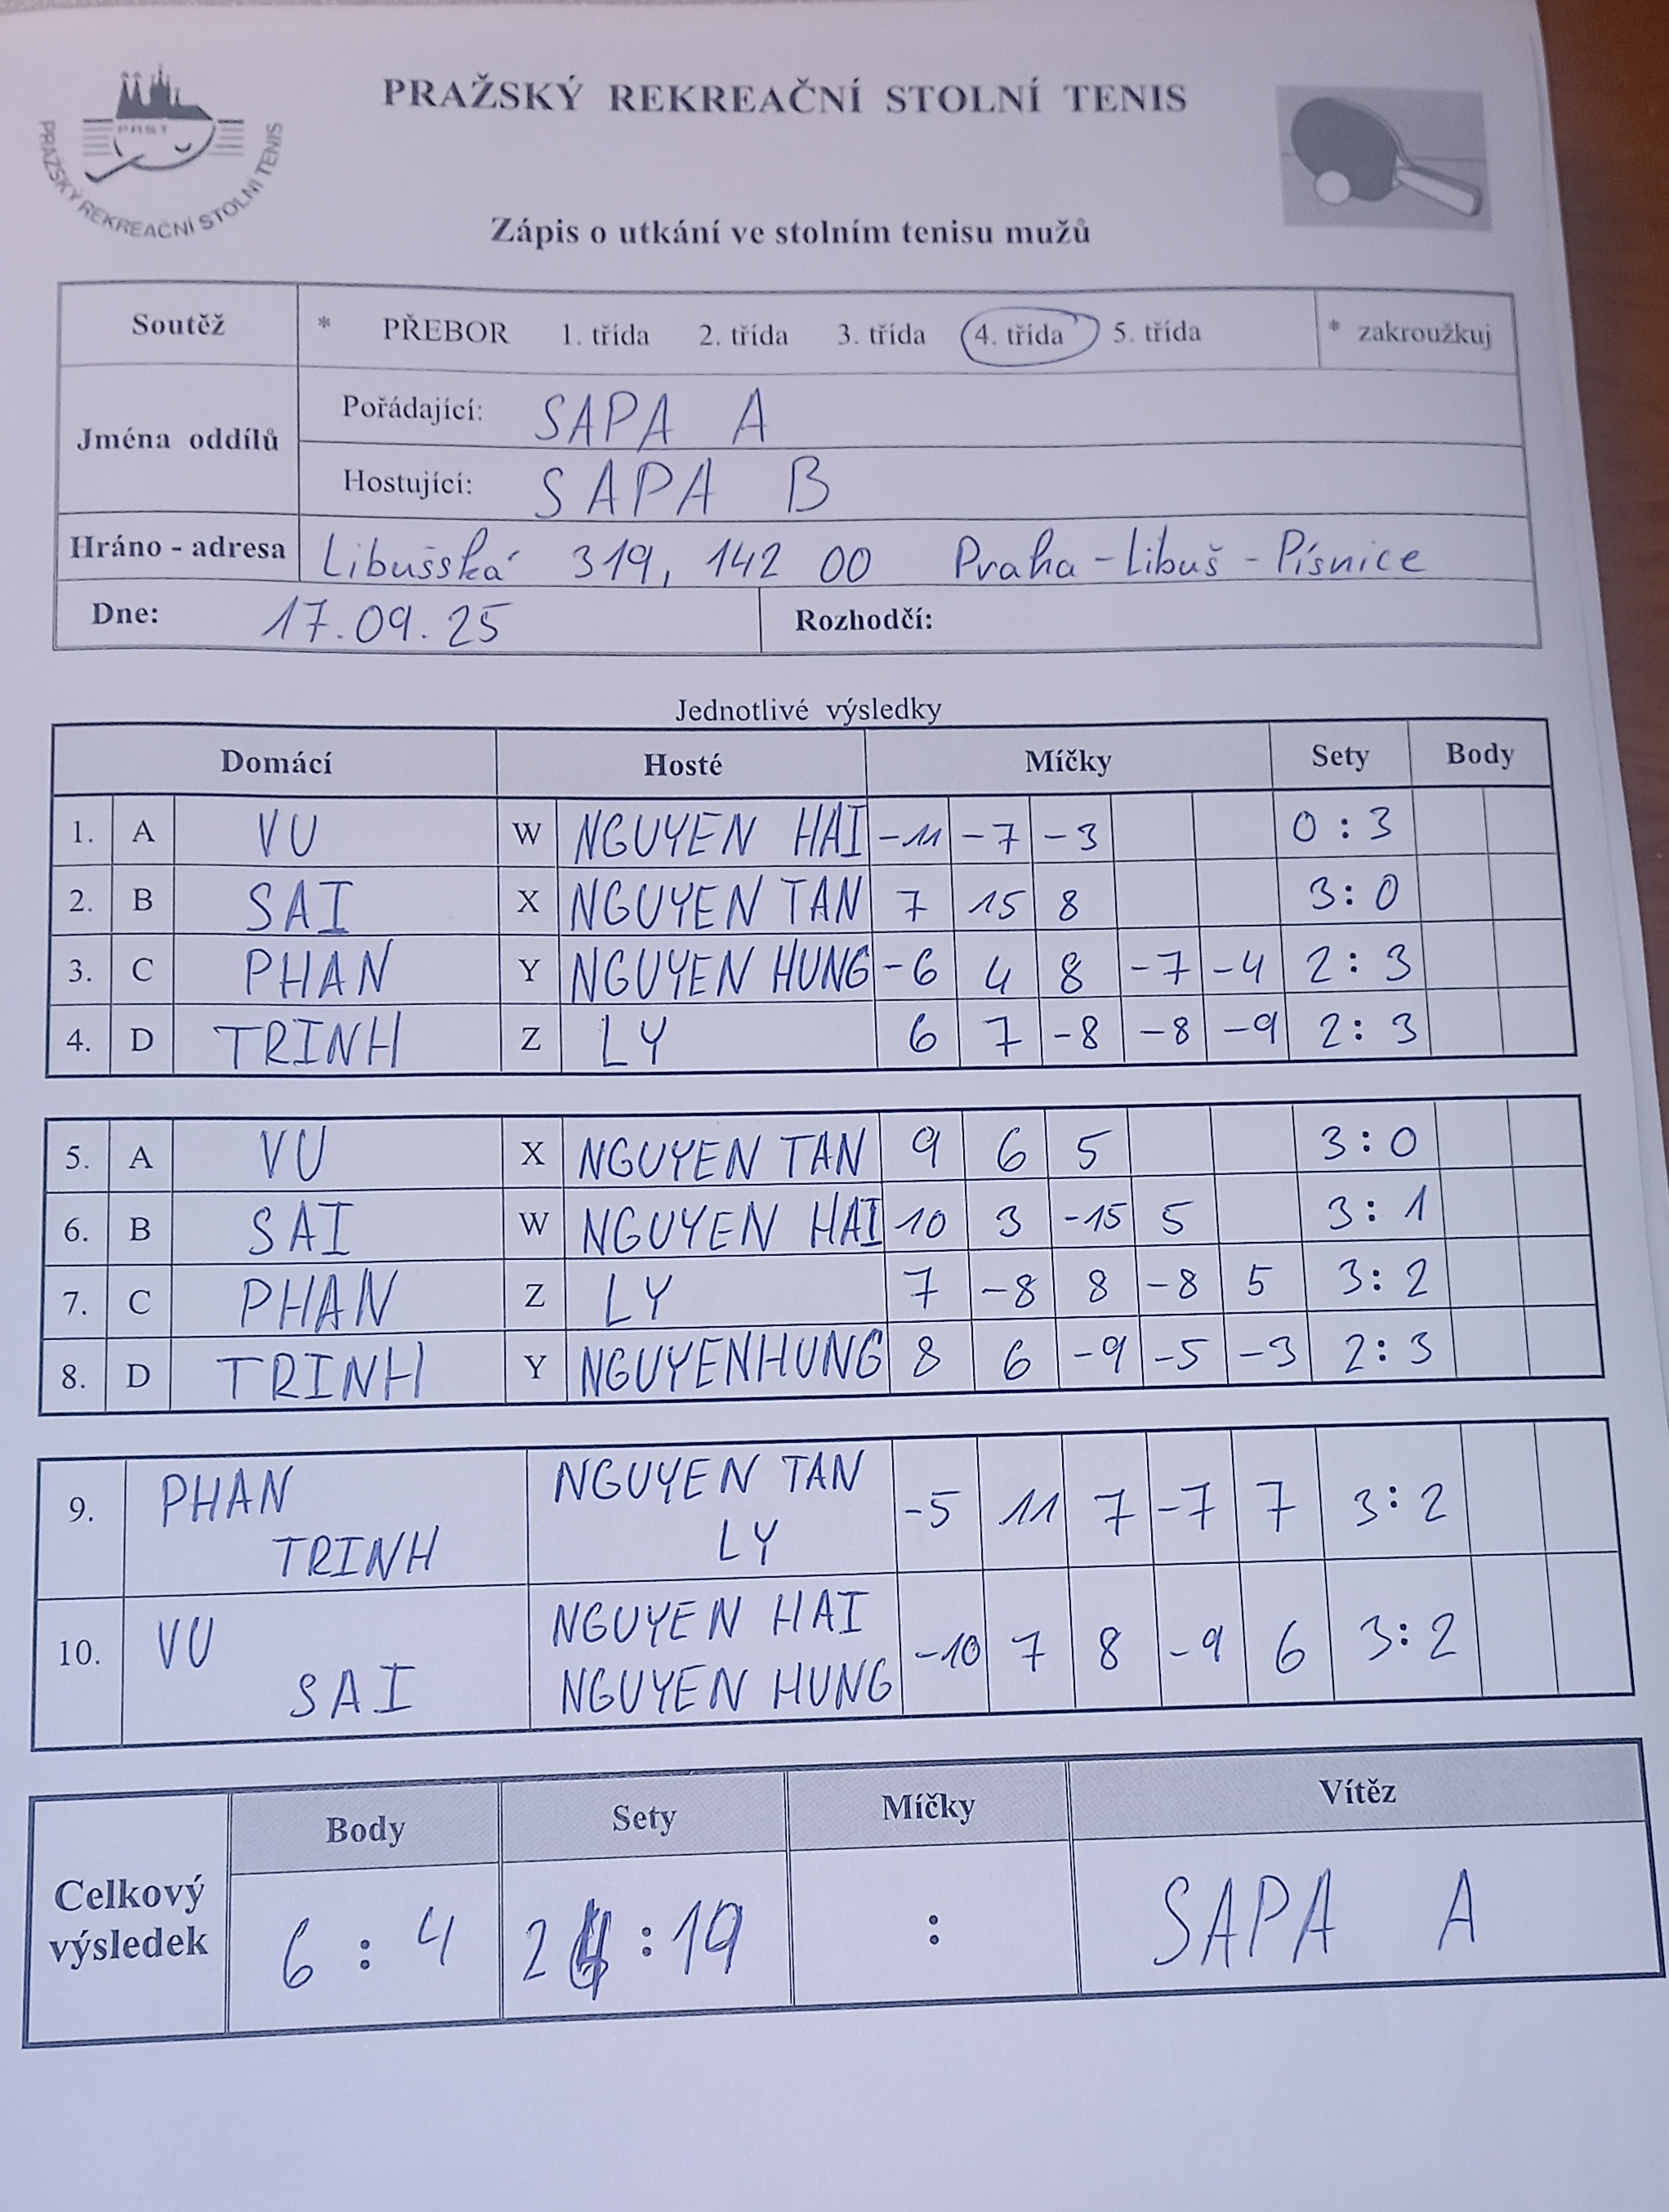 PRAŽSKÝ REKREAČNÍ STOLNÍ TENIS
PRST
PRAŽSKÝ REKREAČNÍ STOLNÍ TENIS
Zápis o utkání ve stolním tenisu mužů
Soutěž * PŘEBOR 1. třída 2. třída 3. třída 4. třída 5. třída * zakroužkuj
Jména oddílů
Pořádající: SAPA A
Hostující: SAPA B
Hráno - adresa Libušská 319, 142 00 Praha - Libuš - Písnice
Dne: 17.09.25 Rozhodčí:
Jednotlivé výsledky
Domácí Hosté Míčky Sety Body
1. A VU W NGUYEN HAI -11 -7 -3 0 : 3
2. B SAI X NGUYEN TAN 7 15 8 3 : 0
3. C PHAN Y NGUYEN HUNG -6 4 8 -7 -4 2 : 3
4. D TRINH Z LY 6 7 -8 -8 -9 2 : 3
5. A VU X NGUYEN TAN 9 6 5 3 : 0
6. B SAI W NGUYEN HAI 10 3 -15 5 3 : 1
7. C PHAN Z LY 7 -8 8 -8 5 3 : 2
8. D TRINH Y NGUYEN HUNG 8 6 -9 -5 -3 2 : 3
9. PHAN TRINH NGUYEN TAN LY -5 11 7 -7 7 3 : 2
10. VU SAI NGUYEN HAI NGUYEN HUNG -10 7 8 -9 6 3 : 2
Body Sety Míčky Vítěz
Celkový výsledek 6 : 4 : 19 : SAPA A